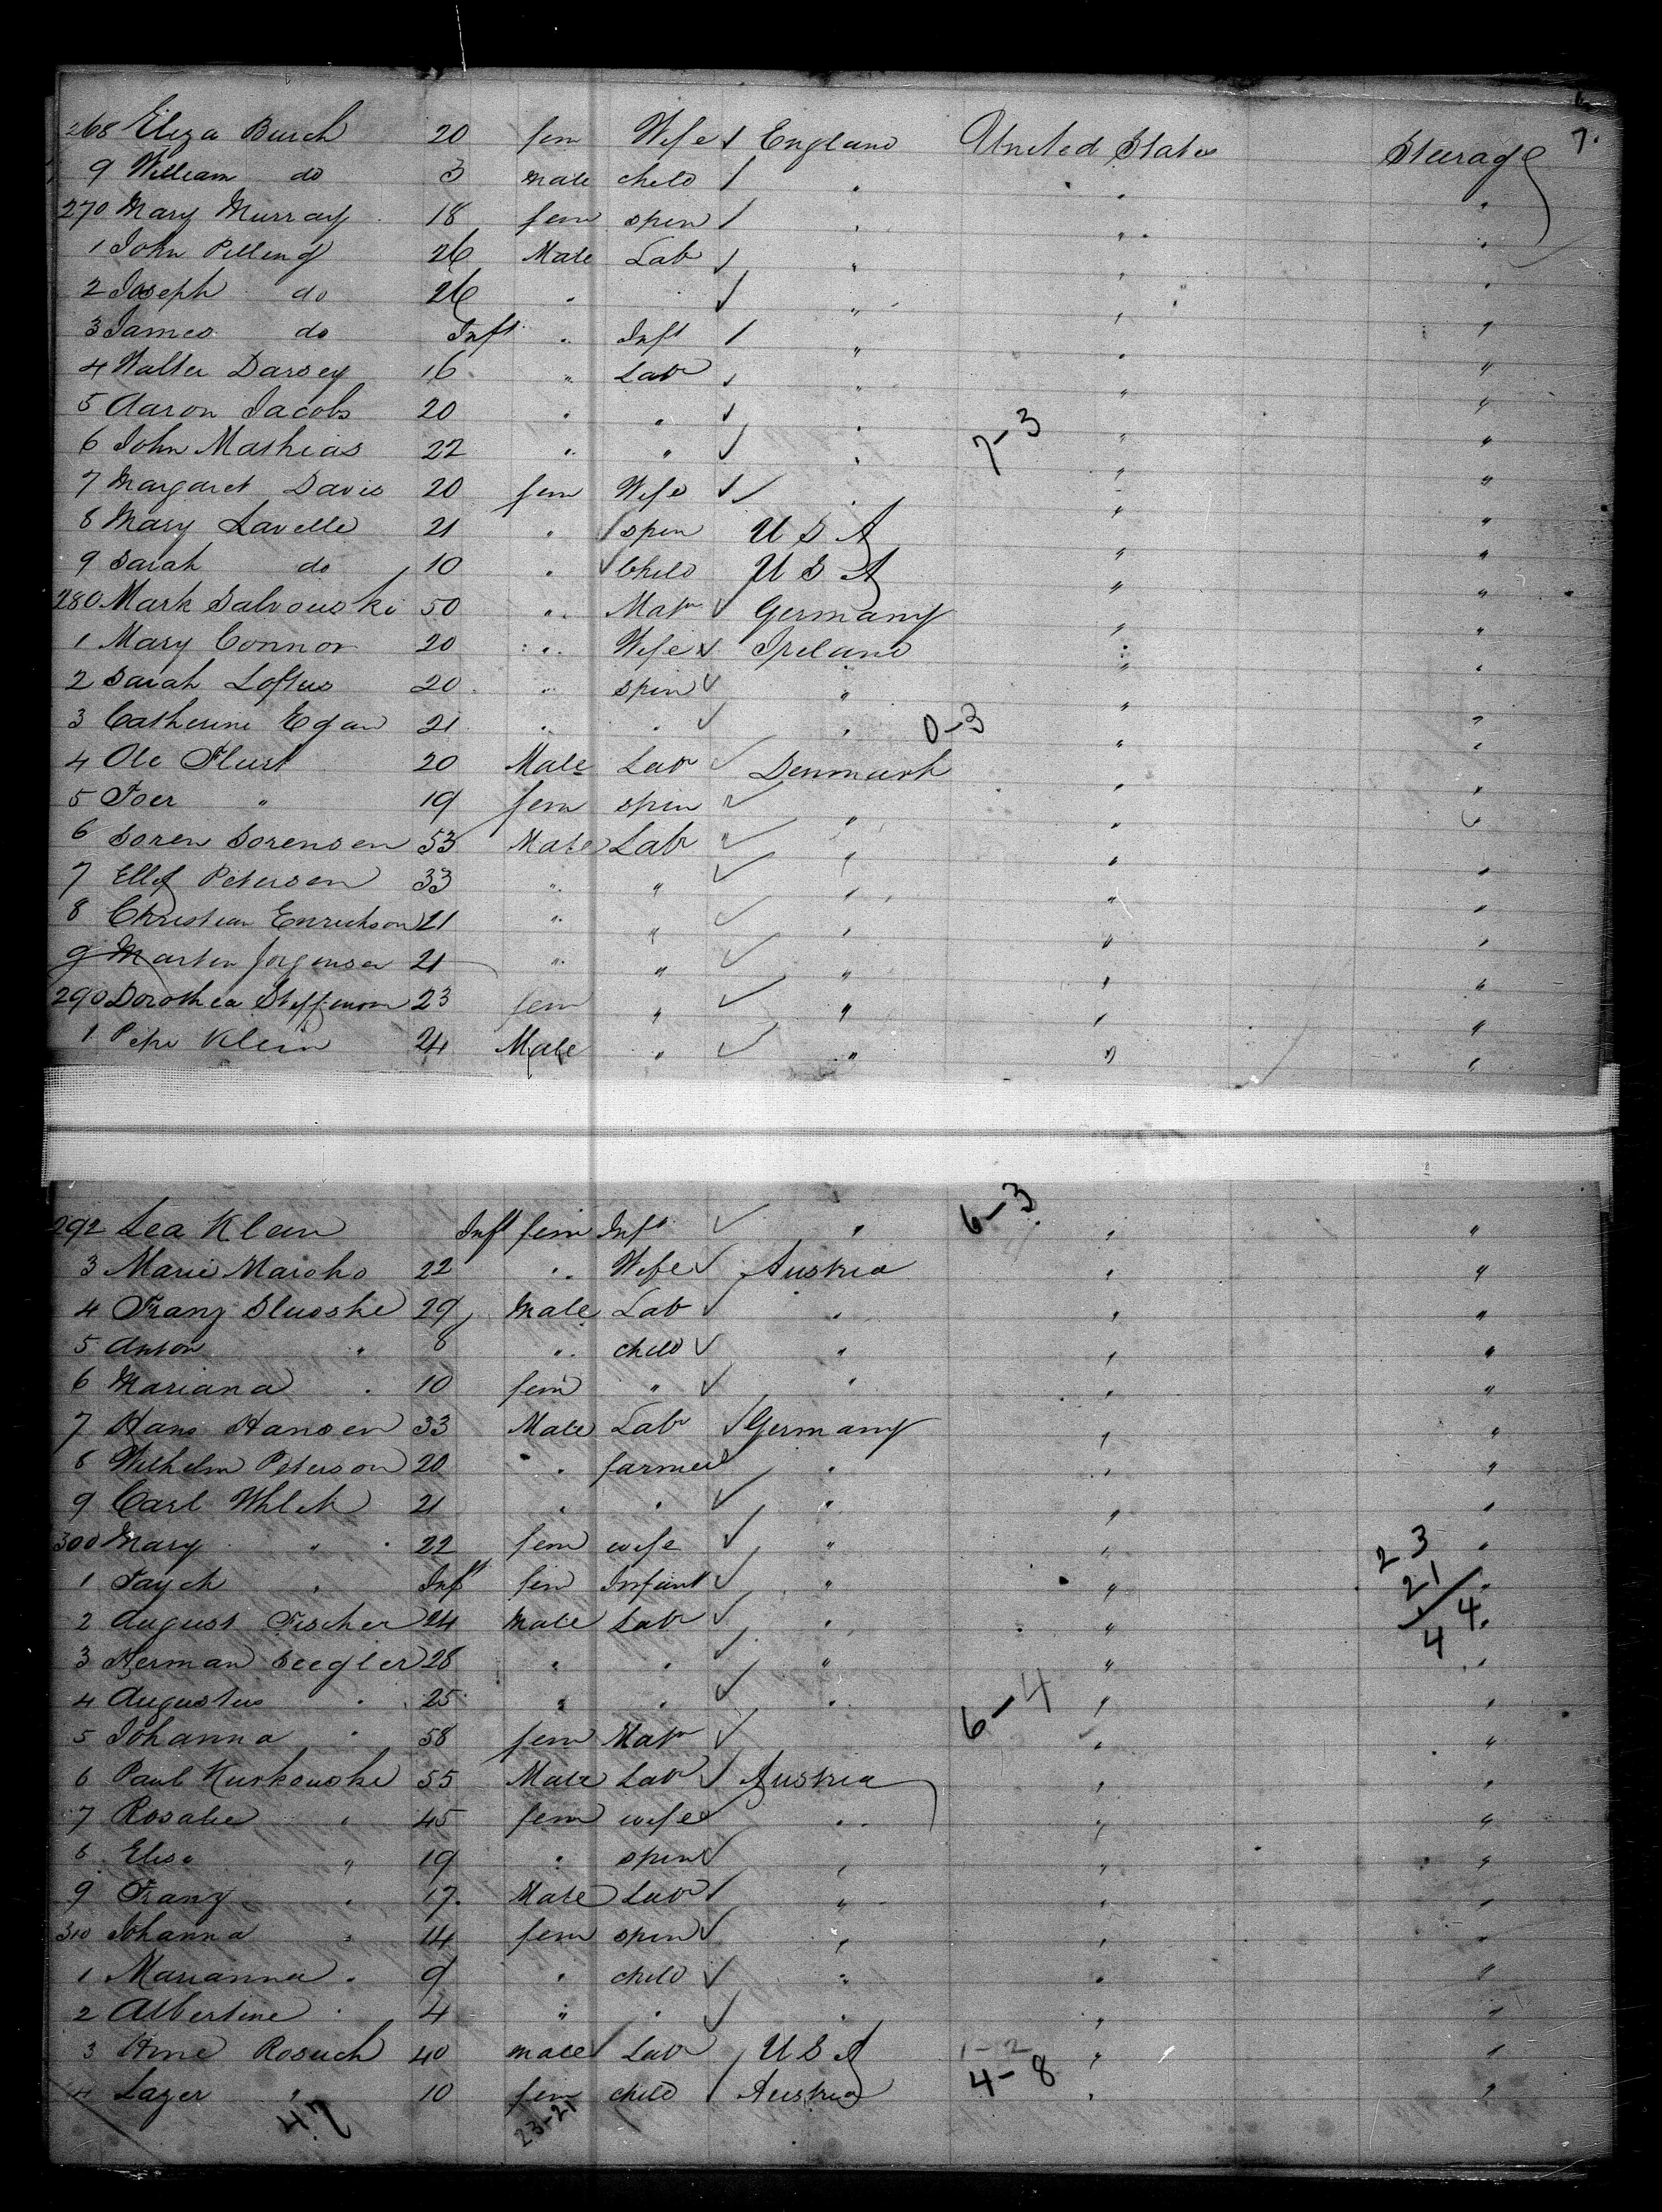 7.
268 Eliza Burch 20 fem Wife England United States Steerage
9 William do 3 male child " " "
270 Mary Murray 18 fem spin " " "
1 John Pilling 26 Male Lab " " "
2 Joseph do 26 " " " " "
3 James do Inft " Inft " " "
4 Walter Darsey 16 " Lab " " "
5 Aaron Jacobs 20 " " " " "
6 John Mathias 22 " " " 7-3 " "
7 Margaret Davis 20 fem Wife " " "
8 Mary Lavelle 21 " spin U S A " "
9 Sarah do 10 " Child U S A " "
280 Mark Salvouski 50 " Matn Germany " "
1 Mary Connor 20 " Wife Ireland " "
2 Sarah Loftus 20 " spin " " "
3 Catherine Egan 21 " " " 0-3 " "
4 Ole Flurt 20 Male Lab Denmark " "
5 Toer " 19 fem spin " " "
6 Soren Sorensen 53 Male Lab " " "
7 Ellef Petersen 33 " " " " "
8 Christian Enrickson 21 " " " " "
9 Martin Jorgensen 21 " " " " "
290 Dorothea Steffenson 23 fem " " " "
1 Peter Klein 24 Male " " " "
292 Lea Klein Inft fem Inft " 6-3 " "
3 Marie Maroho 22 " Wife Austria " "
4 Franz Slusske 29 Male Lab " " "
5 Anton " 8 " child " " "
6 Mariana " 10 fem " " " "
7 Hans Hansen 33 Male Lab Germany " "
8 Wilhelm Peterson 20 " farmer " " "
9 Carl Whlek 21 " " " " "
300 Mary " 22 fem wife " " "
1 Taych " Inft fem Infant " " "
23
21
44
2 August Fischer 24 Male Lab " " "
3 Herman Seegler 28 " " " " "
4 Augustus " 25 " " " 6-4 " "
5 Johanna " 58 fem Matn " "
6 Paul Kurkouske 55 Male Lab Austria " "
7 Rosalie " 45 fem wife " " "
8 Elise " 19 " spin " " "
9 Franz " 17 Male Lab " " "
310 Johanna " 14 fem spin " " "
1 Marianna " 9 " child " " "
2 Albertine " 4 " " " " "
3 Hine Rosuch 40 male Lab U S A 1-2 " "
4 Lazer " 10 fem child Austria 4-8 " "
47 23-21